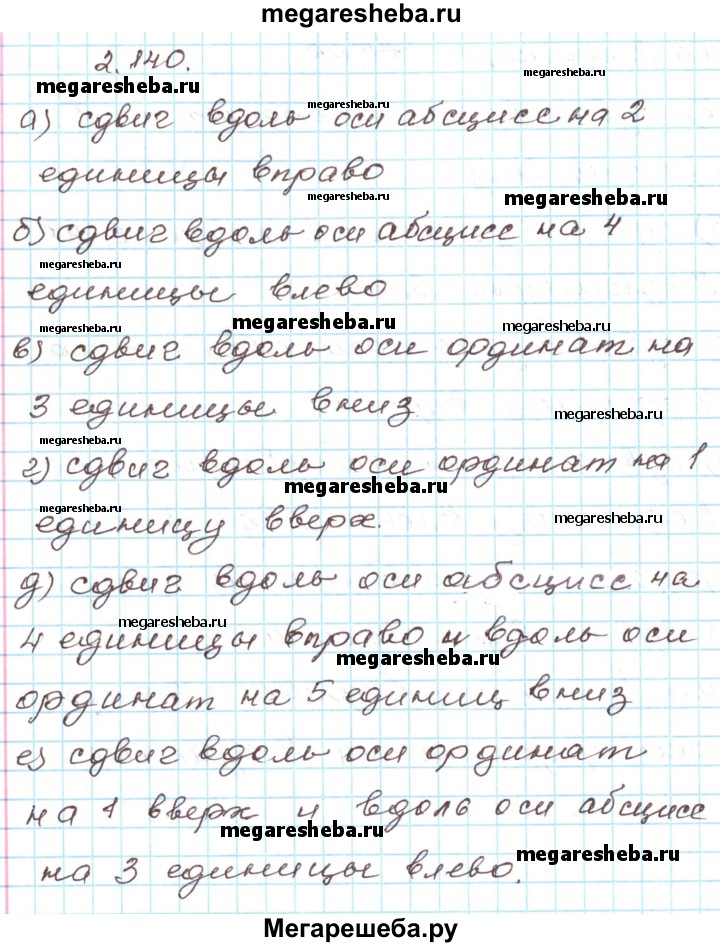 megaresheba.ru
2.140.
megaresheba.ru
megaresheba.ru
megaresheba.ru
а) сдвиг вдоль оси абсцисс на 2
единицы вправо
megaresheba.ru
megaresheba.ru
б) сдвиг вдоль оси абсцисс на 4
megaresheba.ru
megaresheba.ru
единицы влево
megaresheba.ru
megaresheba.ru
megaresheba.ru
в) сдвиг вдоль оси ординат на
3 единицы вниз
megaresheba.ru
megaresheba.ru
г) сдвиг вдоль оси ординат на 1
megaresheba.ru
megaresheba.ru
единицу вверх.
megaresheba.ru
д) сдвиг вдоль оси абсцисс на
megaresheba.ru
4 единицы вправо и вдоль оси
megaresheba.ru
ординат на 5 единиц вниз
е) сдвиг вдоль оси ординат
на 1 вверх и вдоль оси абсцисс
megaresheba.ru
megaresheba.ru
на 3 единицы влево.
Мегарешеба.ру